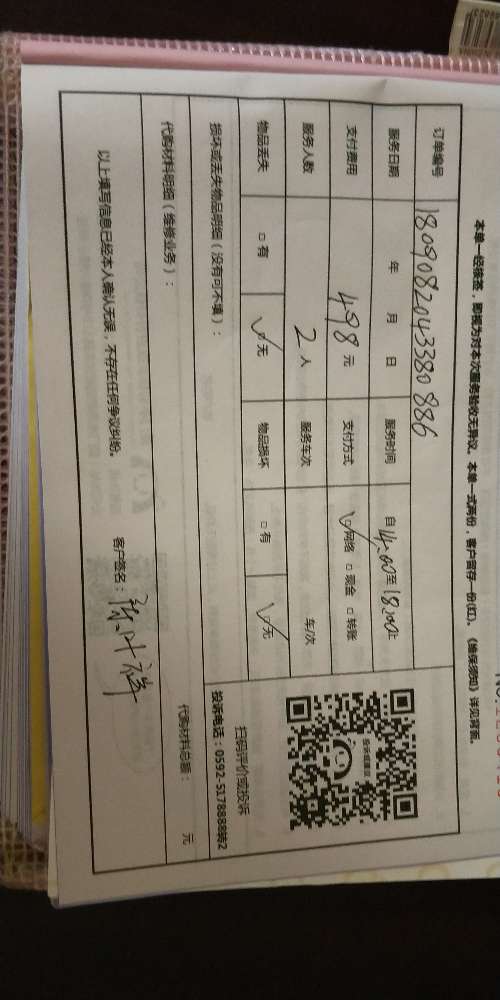 本单一经核签，即视为对本次服务验收无异议。本单一式两份，客户留存一份(红)。《维保须知》详见背面。
订单编号 180908204338 0886
服务日期 年 月 日 服务时间 自14:00至18:00止
支付费用 498元 支付方式 ☑网络 □现金 □转账
服务人数 2人 服务车次 车/次
物品丢失 □有 ☑无 物品损坏 □有 ☑无
扫码评价或投诉
投诉电话：0592-5178888转2
损坏或丢失物品明细（没有可不填）：
代购材料明细（维修业务）：
代购材料总额： 元
以上填写信息已经本人确认无误，不存在任何争议纠纷。
客户签名：